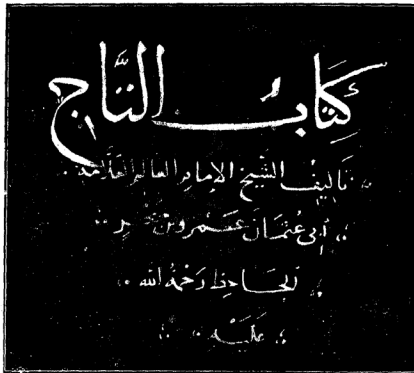 كِتَابُ التَّاج
تأليف الشيخ الإمام العالم العلّامة
أبى عثمان عمرو بن بحر
الجاحظ رحمة الله
عليه